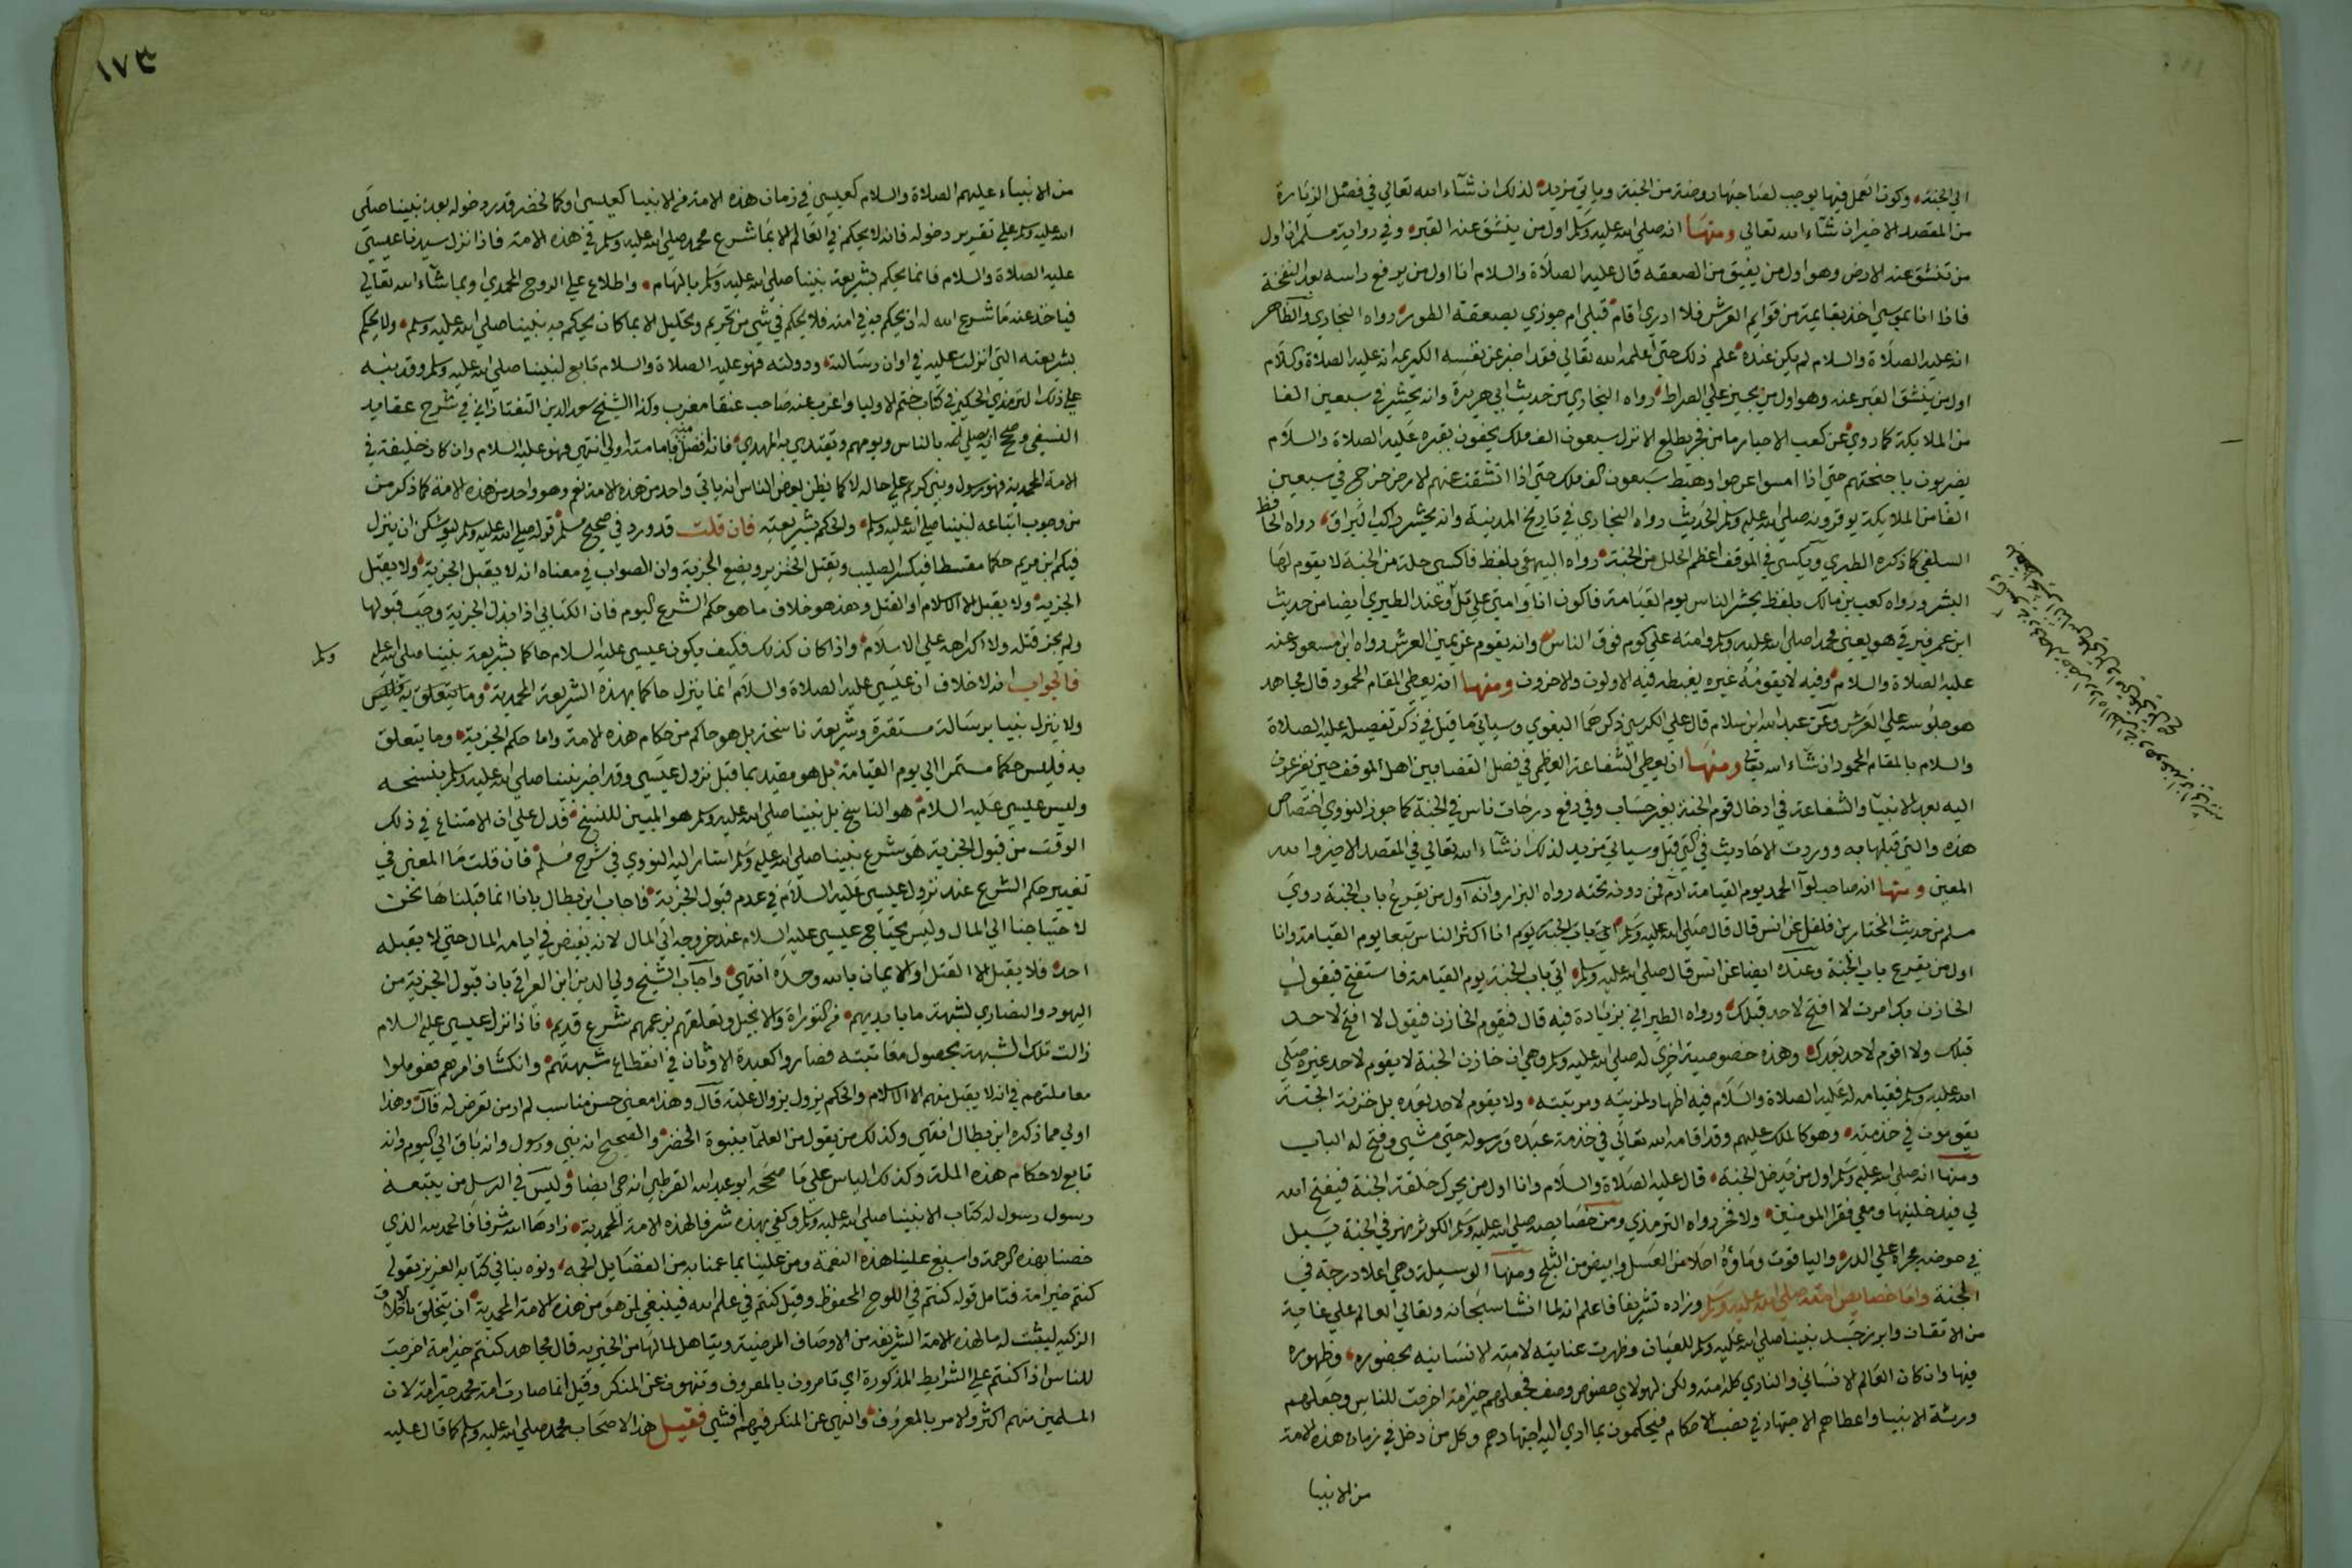 الي الجنة وكون العمل فيها يوجب لصاحبها روضة من الجنة وياتي مزيد لذلك ان شآء الله تعالي في فضل الزيارة
من المقصد الاخير ان شآء الله تعالي ومنها انه صلي الله عليه وسلم اول من ينشق عنه القبر وفي رواية مسلم انا اول
من تنشق عنه الارض وهو اول من يفيق من الصعقه قال عليه الصلاة والسلام انا اول من يرفع راسه بعد النفخة
فاذا انا بموسي اخذ بقايمة من قوايم العرش فلا ادري اقام قبلي ام جوزي بصعقة الطور رواه البخاري والظاهر
انه عليه الصلاة والسلام لم يكن عنده علم ذلك حتي اعلمه الله تعالي فقد اخبر عن نفسه الكريمه انه عليه الصلاة والسلام
اول من ينشق القبر عنه وهو اول من يجيز علي الصراط رواه البخاري من حديث ابي هريرة وانه يحشر في سبعين الفا
من الملايكة كما روي عن كعب الاحبار ما من فجر يطلع الا نزل سبعون الف ملك يحفون بقبره عليه الصلاة والسلام
يضربون باجنحتهم حتي اذا امسوا عرجوا وهبط سبعون الف ملك حتي اذا انشقت عنهم الارض خرج في سبعين
الفا من الملايكة يوقرونه صلي الله عليه وسلم الحديث رواه البخاري في تاريخ المدينة وانه يحشر راكب البراق رواه الحافظ
السلفي كما ذكره الطبري ويكسي في الموقف اعظم الحلل من الجنة رواه البيهقي بلفظ فاكسي حلة من الجنة لا يقوم لها
البشر ورواه كعب بن مالك بلفظ يحشر الناس يوم القيامة فاكون انا وامتي علي تل وعند الطبري ايضا من حديث
ابن عمر فيرقي هو يعني محمدا صلي الله عليه وسلم وامته علي كوم فوق الناس وانه يقوم عن يمين العرش رواه ابن مسعود عنه
عليه الصلاة والسلام وفيه لا يقومه غيره يغبطه فيه الاولون والاخرون ومنها انه يعطي المقام المحمود قال مجاهد
هو جلوسه علي العرش وعن عبد الله ابن سلام قال علي الكرسي ذكرهما البغوي وسياتي ما قيل في ذكر تفضيله عليه الصلاة
والسلام بالمقام المحمود ان شاء الله تعالي ومنها انه يعطي الشفاعة العظمي في فصل القضا بين اهل الموقف حين يفزعون
اليه بعد الانبيآ والشفاعة في ادخال قوم الجنة بغير حساب وفي رفع درجات ناس في الجنة كما جوز النووي اختصاص
هذه والتي قبلها به ووردت الاحاديث في التي قبل وسياتي مزيد لذلك ان شآء الله تعالي في المقصد الاخير والله
المعين ومنها انه صاحب لوآ الحمد يوم القيامة ادم فمن دونه تحته رواه البزار وانه اول من يقرع باب الجنة روي
مسلم من حديث المختار بن فلفل عن انس قال قال صلي الله عليه وسلم انا اكثر الناس تبعا يوم القيامة وانا
اول من يقرع باب الجنة وعنده ايضا عن انس قال صلي الله عليه وسلم اتي باب الجنة يوم القيامة فاستفتح فيقول
الخازن بك امرت لا افتح لاحد قبلك ورواه الطبراني بزيادة فيه قال فيقوم الخازن فيقول لا افتح لاحد
قبلك ولا اقوم لاحد بعدك وهذه خصوصية اخري له صلي الله عليه وسلم وهي ان خازن الجنة لا يقوم لاحد غيره صلي
الله عليه وسلم فقيامه له عليه الصلاة والسلام فيه اظهار لمزيته ومرتبته ولا يقوم لاحد بعده بل خزنة الجنة
يقومون في خدمته وهو كالملك عليهم وقد اقامه الله تعالي في خدمة عبده ورسوله حتي مشي وفتح له الباب
ومنها انه صلي الله عليه وسلم اول من يدخل الجنة قال عليه الصلاة والسلام وانا اول من يحرك حلقة الجنة فيفتح الله
لي فيدخلنيها ومعي فقرا المومنين ولا فخر رواه الترمذي ومن خصايصه صلي الله عليه وسلم الكوثر نهر في الجنة يسيل
في حوضه مجراه علي الدر والياقوت وماؤه احلا من العسل وابيض من الثلج ومنها الوسيلة وهي اعلا درجة في
الجنة واما خصايص امته صلي الله عليه وسلم وزاده تشريفا فاعلم انه لما انشا سبحانه وتعالي العالم علي غاية
من الاتقان وابرز جسد نبينا صلي الله عليه وسلم للعيان وظهرت عنايته لامته الانسانيه بحضوره وظهوره
فيها وان كان العالم الانساني والناري كله امته ولكن لهولاي خصوص وصف فجعلهم خير امة اخرجت للناس وجعلهم
ورثة الانبيا واعطاهم الاجتهاد في نصب الاحكام فيحكمون بما ادي اليه اجتهادهم وكل من دخل في زمان هذه الامة
من الانبيا
١٧٣
من الانبيآء عليهم الصلاة والسلام كعيسي في زمان هذه الامة من الانبيا كعيسي او كالخضر قدر دخوله بعد نبينا صلي
الله عليه وسلم علي تقدير دخوله فانه لا يحكم في العالم الا بما شرع محمد صلي الله عليه وسلم في هذه الامة فاذا نزل سيدنا عيسي
عليه الصلاة والسلام فانما يحكم بشريعة نبينا صلي الله عليه وسلم بالهام واطلاع علي الروح المحمدي او بما شآء الله تعالي
فياخذ عنه ما شرع الله له ان يحكم به في امته فلا يحكم في شي من تحريم وتحليل الا بما كان يحكم به نبينا صلي الله عليه وسلم ولا يحكم
بشريعته التي انزلت عليه في اوان رسالته ودولته فهو عليه الصلاة والسلام تابع لنبينا صلي الله عليه وسلم وقد نبه
علي ذلك الترمذي الحكيم في كتاب ختم الاوليا واعرب عنه صاحب عنقا مغرب وكذا الشيخ سعد الدين التفتازاني في شرح عقايد
النسفي وصحح انه يصلي بالناس ويومهم ويقتدي به المهدي فانه افضل منه فامامته اولي انتهي فهو عليه السلام وان كان خليفة في
الامة المحمدية فهو رسول ونبي كريم علي حاله لا كما يظن بعض الناس انه ياتي واحد من هذه الامة نعم وهو واحد من هذه الامة كما ذكر من
من وجوب اتباعه لنبينا صلي الله عليه وسلم والحكم بشريعته فان قلت قد ورد في صحيح مسلم قوله صلي الله عليه وسلم ليوشكن ان ينزل
فيكم ابن مريم حكما مقسطا فيكسر الصليب ويقتل الخنزير ويضع الجزية وان الصواب في معناه انه لا يقبل الجزية ولا يقبل
الجزية ولا يقبل الا الاسلام او القتل وهذا هو خلاف ما هو حكم الشرع اليوم فان الكتابي اذا بذل الجزية وجب قبولها
ولم يجز قتله ولا اكراهه علي الاسلام واذا كان كذلك فكيف يكون عيسي عليه السلام حاكما بشريعة نبينا صلي الله عليه وسلم
فالجواب انه لا خلاف ان عيسي عليه الصلاة والسلام انما ينزل حاكما بهذه الشريعة المحمدية
ولا ينزل نبيا برسالة مستقرة وشريعة ناسخة بل هو حاكم من حكام هذه الامة واما حكم الجزية وما يتعلق
به فليس حكما مستمرا الي يوم القيامة بل هو مقيد بما قبل نزول عيسي وقد اخبر نبينا صلي الله عليه وسلم بنسخه
وليس عيسي عليه السلام هو الناسخ بل نبينا صلي الله عليه وسلم هو المبين للنسخ فدل علي ان الامتناع في ذلك
الوقت من قبول الجزية هو شرع نبينا صلي الله عليه وسلم اشار اليه النووي في شرح مسلم فان قلت ما المعني في
تغيير حكم الشرع عند نزول عيسي عليه السلام في عدم قبول الجزية فاجاب ابن بطال بانا انما قبلناها نحن
لاحتياجنا الي المال وليس يحتاج عيسي عليه السلام عند خروجه الي المال لانه يفيض في ايامه المال حتي لا يقبله
احد فلا يقبل الا القتل او الايمان بالله وحده انتهي واجاب الشيخ ولي الدين ابن العراقي بان قبول الجزية من
اليهود والنصاري لشبهة ما بايديهم من التوراة والانجيل وتعلقهم بزعمهم بشرع قديم فاذا نزل عيسي عليه السلام
زالت تلك الشبهة بحصول معاينته فصاروا كعبدة الاوثان في انقطاع شبهتهم وانكشاف امرهم فعوملوا
معاملتهم في انه لا يقبل منهم الا الاسلام والحكم يزول بزوال علته قال وهذا معني حسن مناسب لم ار من تعرض له قال وهذا
اولي مما ذكره ابن بطال انتهي وكذلك من يقول من العلمآ بنبوة الخضر والصحيح انه نبي ورسول وانه باق الي اليوم وانه
تابع لاحكام هذه الملة وكذلك الياس علي ما صححه ابو عبد الله القرطبي انه حي ايضا وليس في الرسل من يتبعه
رسول رسول له كتاب الا نبينا صلي الله عليه وسلم وكفي بهذه شرفا لهذه الامة المحمدية زادها الله شرفا فالحمد لله الذي
خصنا بهذه الرحمة واسبغ علينا هذه النعمة ومن علينا بما عمنا به من الفضايل الجمه ونوه بنا في كتابه العزيز بقوله
كنتم خير امة فتامل قوله كنتم في اللوح المحفوظ وقيل كنتم في علم الله فينبغي لمن هو من هذه الامة المحمدية ان يتخلق بالاخلاق
الزكيه ليثبت له ما لهذه الامة الشريفه من الاوصاف المرضية ويتاهل لما لها من الخيريه قال مجاهد كنتم خير امة اخرجت
للناس اذا كنتم علي الشرايط المذكورة اي تامرون بالمعروف وتنهون عن المنكر وقيل انما صارت امة محمد خير امة لان
المسلمين منهم اكثر والامر بالمعروف والنهي عن المنكر فيهم افشي فقيل هذا لاصحاب محمد صلي الله عليه وسلم كما قال عليه